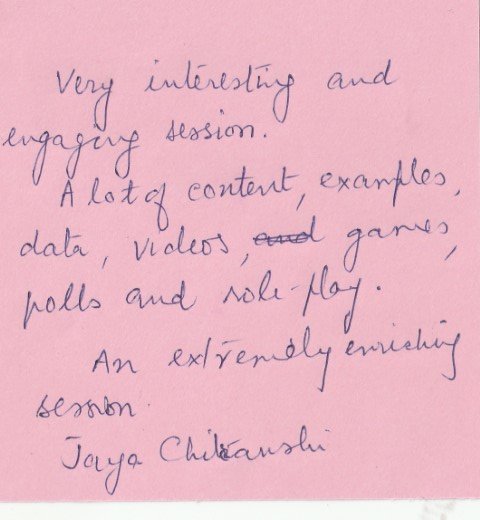 Very interesting and
engaging session.
A lot of content, examples,
data, videos, and games,
polls and role-play.
An extremely enriching
session.
Jaya